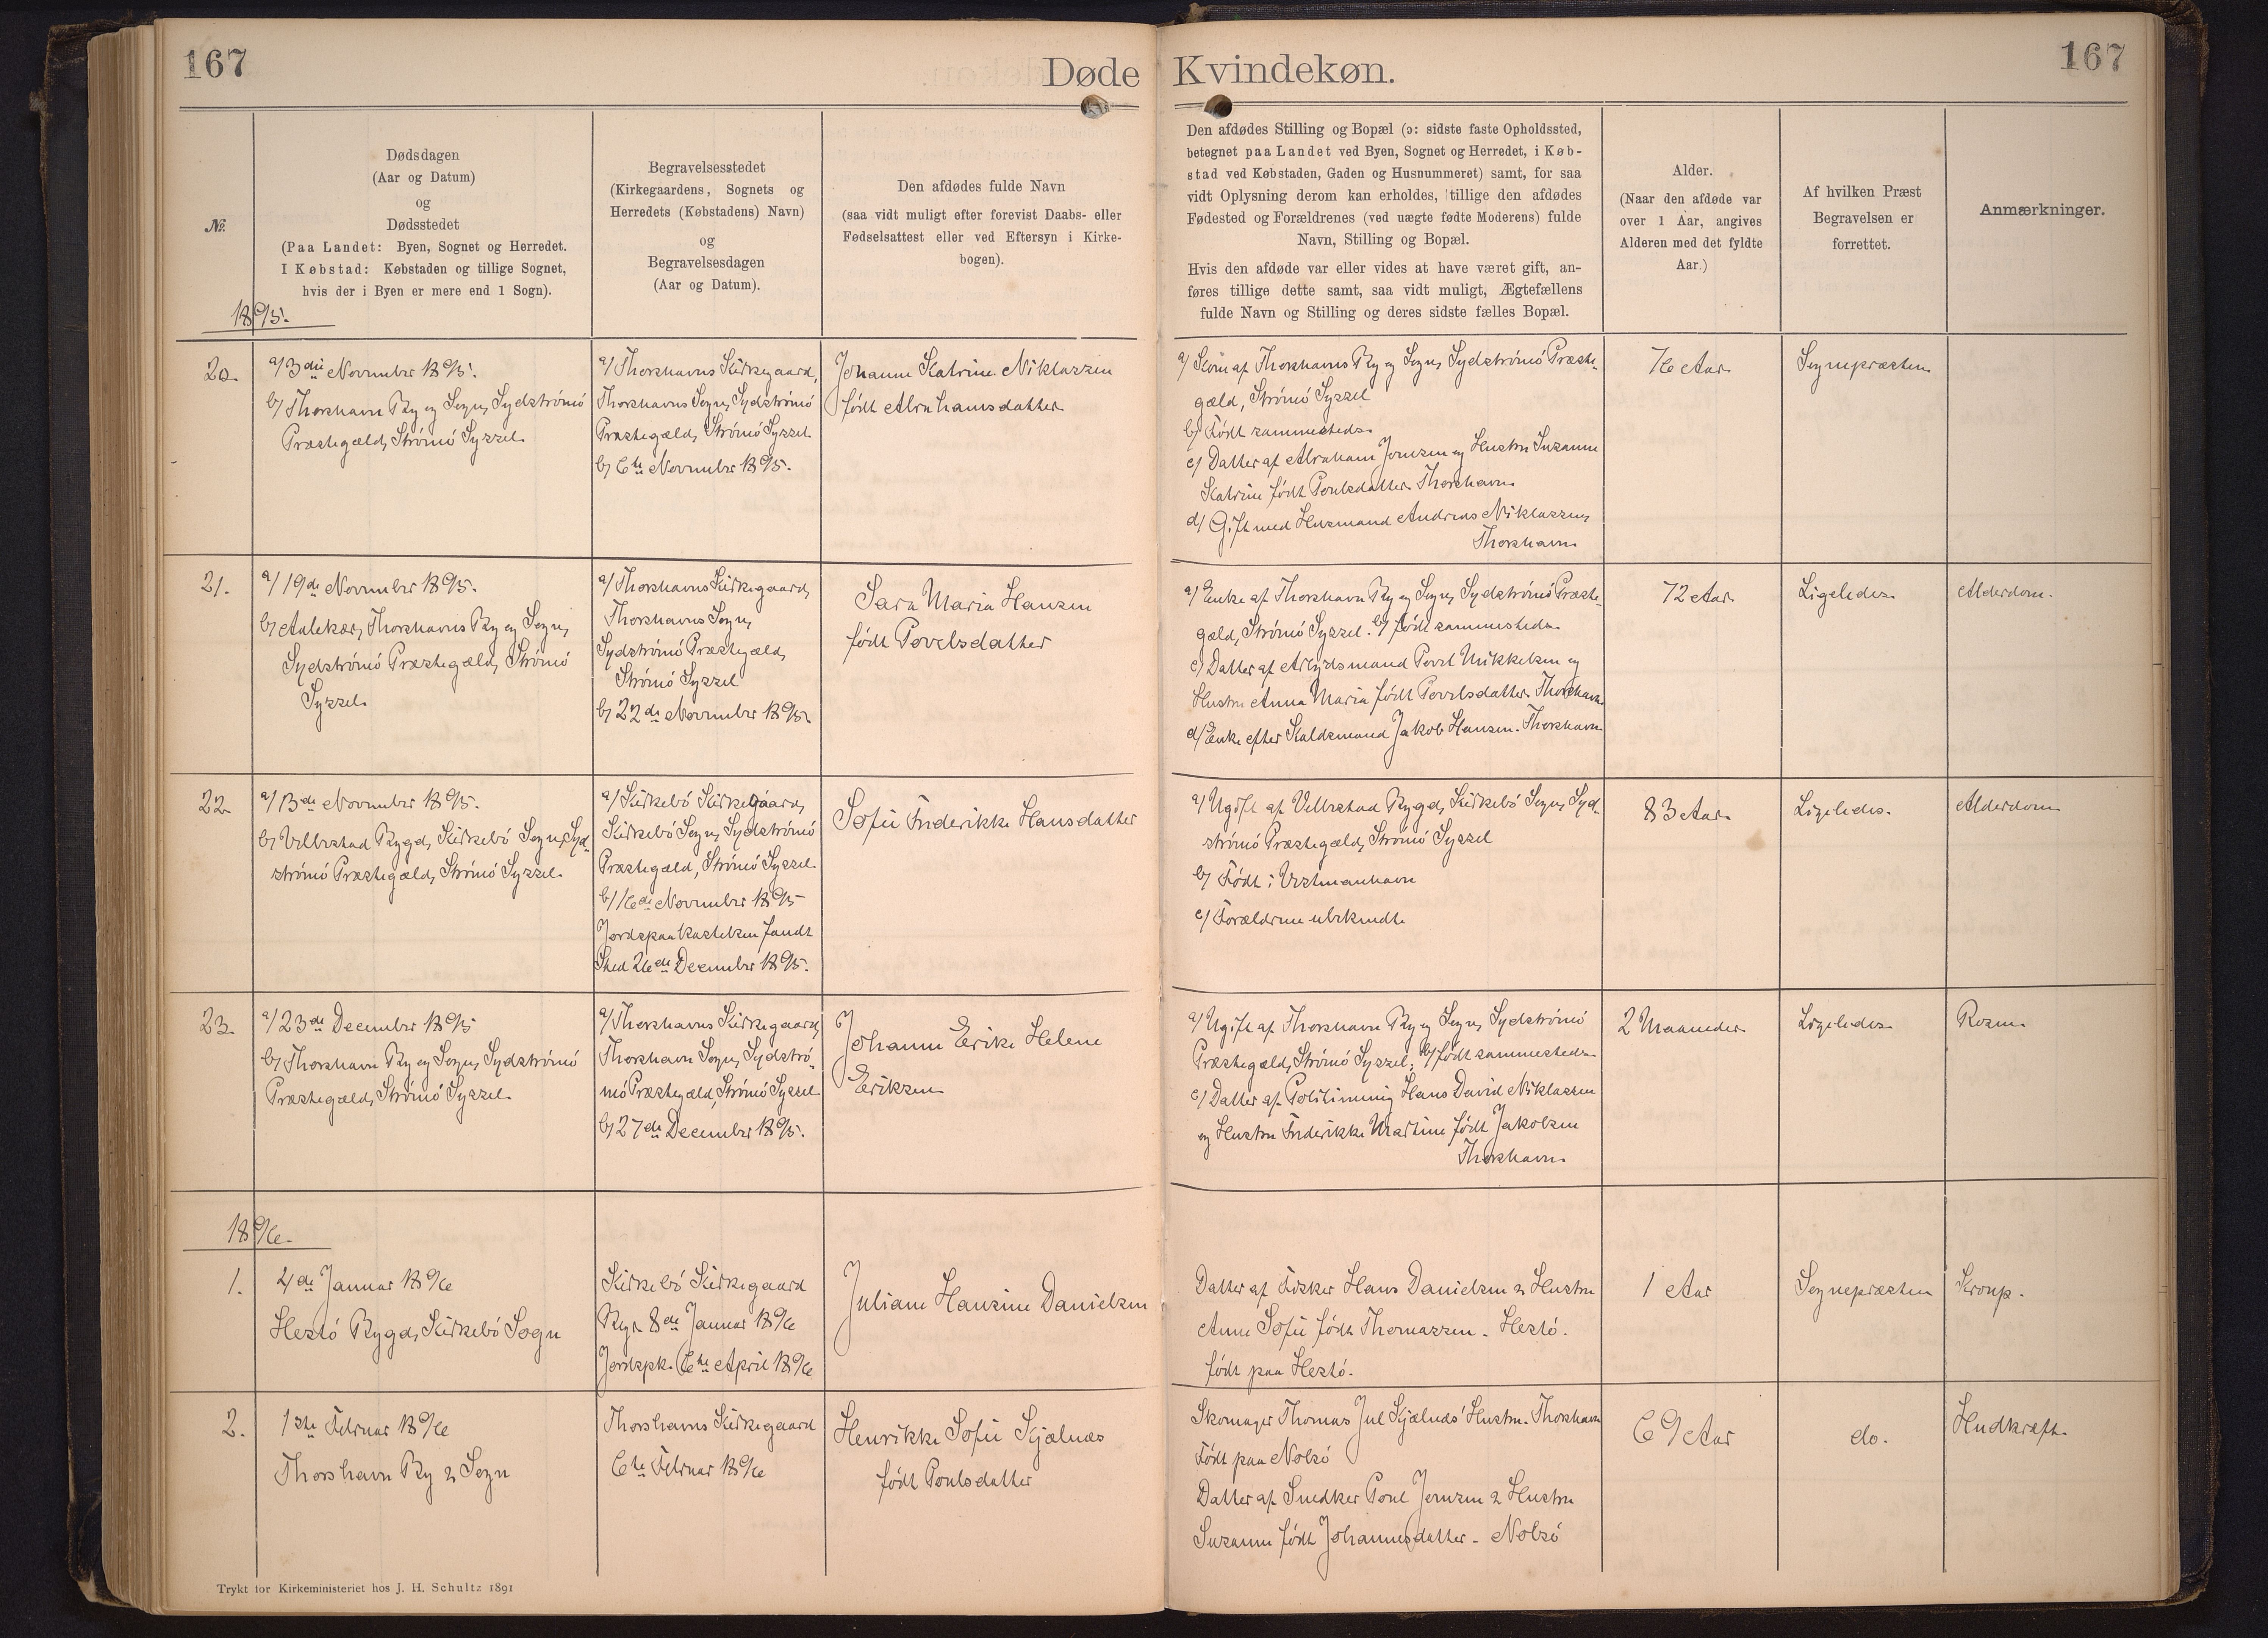 167
Døde
Kvindekøn.
167
№
Dødsdagen
(Aar og Datum)
og
Dødsstedet
(Paa Landet: Byen, Sognet og Herredet.
I Købstad: Købstaden og tillige Sognet,
hvis der i Byen er mere end 1 Sogn).
Begravelsesstedet
(Kirkegaardens, Sognets og
Herredets (Købstadens) Navn)
og
Begravelsesdagen
(Aar og Datum).
Den afdødes fulde Navn
(saa vidt muligt efter forevist Daabs- eller
Fødselsattest eller ved Eftersyn i Kirke-
bogen).
Den afdødes Stilling og Bopæl (ɔ: sidste faste Opholdssted,
betegnet paa Landet ved Byen, Sognet og Herredet, i Køb-
stad ved Købstaden, Gaden og Husnummeret) samt, for saa
vidt Oplysning derom kan erholdes, tillige den afdødes
Fødested og Forældrenes (ved uægte fødte Moderens) fulde
Navn, Stilling og Bopæl.
Hvis den afdøde var eller vides at have været gift, an-
føres tillige dette samt, saa vidt muligt, Ægtefællens
fulde Navn og Stilling og deres sidste fælles Bopæl.
Alder.
(Naar den afdøde var
over 1 Aar, angives
Alderen med det fyldte
Aar.)
Af hvilken Præst
Begravelsen er
forrettet.
Anmærkninger.
1895.
20.
a/ 3die November 1895.
b/ Thorshavn By og Sogn, Sydströmö
Præstegæld, Strömö Syssel.
a/ Thorshavns Kirkegaard,
Thorshavns Sogn, Sydströmö
Præstegæld, Strömö Syssel
b/ 6te November 1895.
Johanne Katrine Niklassen
født Abrahamsdatter
a/ Kone af Thorshavns By og Sogn, Sydströmö Præste-
gæld, Strömö Syssel
b/ Født sammesteds.
c/ Datter af Abraham Joensen og Hustru Susanne
Katrine født Poulsdatter. Thorshavn.
d/ Gift med Husmand Andreas Niklassen,
Thorshavn.
76 Aar.
Sognepræsten
21.
a/ 19de November 1895.
b/ Aalekær, Thorshavns By og Sogn,
Sydströmö Præstegæld, Strömö
Syssel.
a/ Thorshavns Kirkegaard,
Thorshavns Sogn,
Sydströmö Præstegæld,
Strömö Syssel
b/ 22de November 1895.
Sara Maria Hansen
født Povelsdatter
a/ Enke af Thorshavn By og Sogn, Sydströmö Præste-
gæld, Strömö Syssel. b/ født sammesteds
c/ Datter af Arbejdsmand Povel Mikkelsen og
Hustru Anna Maria født Povelsdatter. Thorshavn.
d/ Enke efter Kaldsmand Jakob Hansen. Thorshavn.
72 Aar.
Ligeledes.
Alderdom.
22.
a/ 13de November 1895.
b/ Velbestad Bygd, Kirkebö Sogn, Syd-
strömö Præstegæld, Strömö Syssel.
a/ Kirkebö Kirkegaard,
Kirkebö Sogn, Sydströmö
Præstegæld, Strömö Syssel.
b/ 16de November 1895
Jordspaakastelsen fandt
Sted 26de December 1895.
Sofie Frederikke Hansdatter
a/ Ugift af Velbestad Bygd, Kirkebö Sogn, Syd-
strömö Præstegæld, Strömö Syssel
b/ Født i Vestmanhavn
c/ Forældrene ubekendte
83 Aar.
Ligeledes.
Alderdom
23.
a/ 23de December 1895
b/ Thorshavn By og Sogn, Sydströmö
Præstegæld, Strömö Syssel.
a/ Thorshavns Kirkegaard,
Thorshavn Sogn, Sydströ-
mö Præstegæld, Strömö Syssel
b/ 27de December 1895.
Johanne Erike Helene
Eriksen
a/ Ugift af Thorshavn By og Sogn, Sydströmö
Præstegæld, Strömö Syssel; b/ født sammesteds
c/ Datter af Hans David Niklassen
og Hustru Frederikke Martine født Jakobsen
Thorshavn.
2 Maaneder.
Ligeledes
Rosen.
1896.
1.
4de Januar 1896
Hestö Bygd, Kirkebö Sogn
Kirkebö Kirkegaard
Bgr. 8de Januar 1896
Jordspk. 6te April 1896
Juliane Hansine Danielsen
Datter af Fisker Hans Danielsen & Hustru
Anne Sofie født Thomassen. Hestö.
født paa Hestö.
1 Aar
Sognepræsten
Kroup.
2.
1ste Februar 1896
Thorshavn By & Sogn
Thorshavns Kirkegaard
6te Februar 1896
Henrikke Sofie Skjælnæs
født Poulsdatter
Skomager Thomas Jul Skjælnæs' Hustru. Thorshavn
Født paa Nolsö
Datter af Snedker Poul Joensen & Hustru
Susanne født Johannesdatter. Nolsö
69 Aar
do.
Hudkræft.
Trykt for Kirkeministeriet hos J. H. Schultz 1891